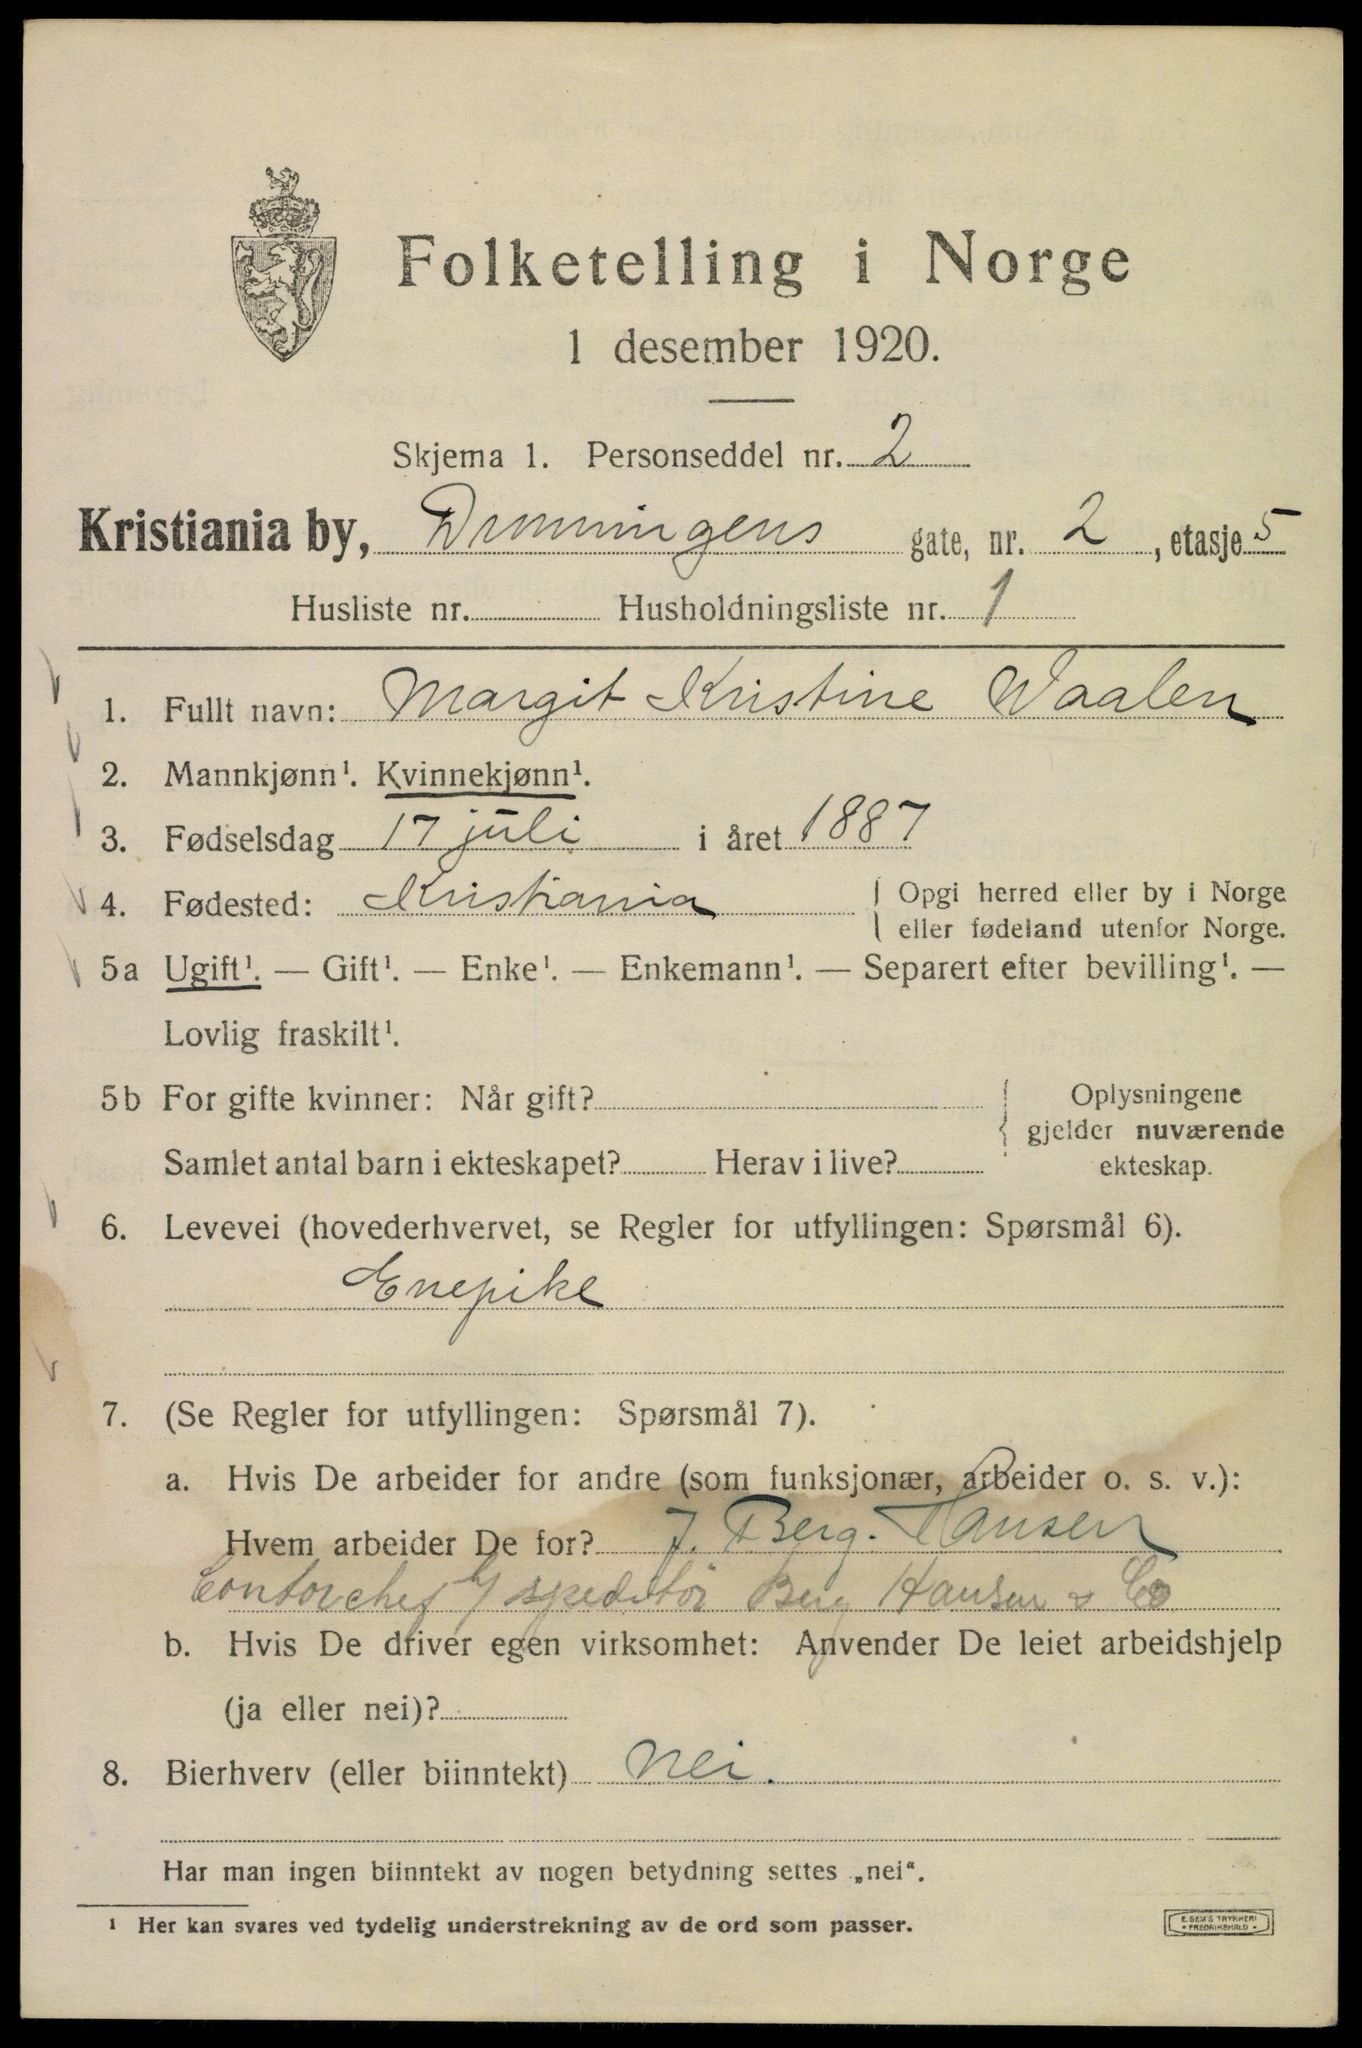 Folketelling i Norge
1 desember 1920.
Skjema 1. Personseddel nr. 2
Kristiania by, Dronningens gate, nr. 2, etasje 5
Husliste nr. Husholdningsliste nr. 1
1. Fullt navn: Margit Kristine Waalen
2. Mannkjønn¹. Kvinnekjønn¹.
3. Fødselsdag 17 juli i året 1887
4. Fødested: Kristiania { Opgi herred eller by i Norge
eller fødeland utenfor Norge.
5a Ugift¹. — Gift¹. — Enke¹. — Enkemann¹. — Separert efter bevilling¹. —
Lovlig fraskilt¹.
5b For gifte kvinner: Når gift? { Oplysningene
gjelder nuværende
Samlet antal barn i ekteskapet? Herav i live? ekteskap.
6. Levevei (hovederhvervet, se Regler for utfyllingen: Spørsmål 6).
Enepike
7. (Se Regler for utfyllingen: Spørsmål 7).
a. Hvis De arbeider for andre (som funksjonær, arbeider o. s. v.):
Hvem arbeider De for? J. Berg-Hansen
Contorchef i/ speditør Berg Hansen & Co
b. Hvis De driver egen virksomhet: Anvender De leiet arbeidshjelp
(ja eller nei)?
8. Bierhverv (eller biinntekt) Nei.
Har man ingen biinntekt av nogen betydning settes „nei“.
¹ Her kan svares ved tydelig understrekning av de ord som passer.
E. SEM'S TRYKKERI
• FREDRIKSHALD •